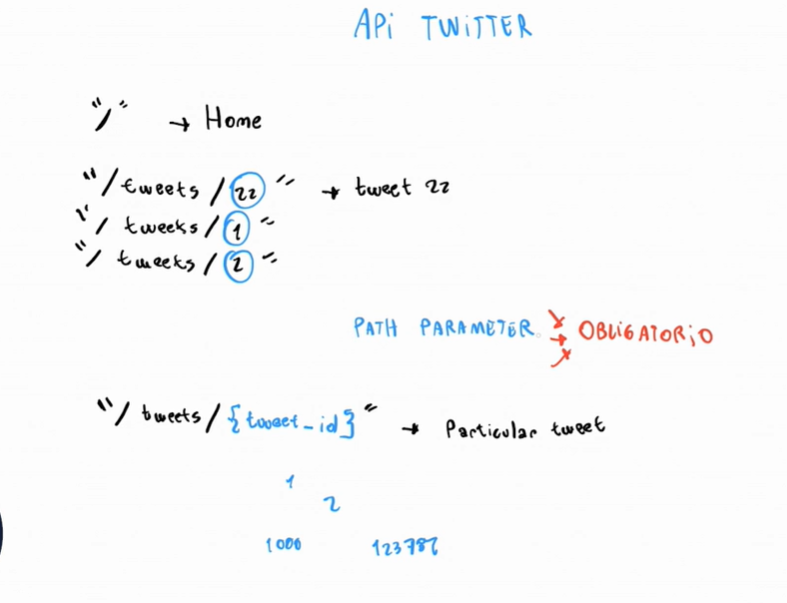 APi TWiTTER
"/" → Home
"/tweets/22" → tweet 22
"/ tweeks/1"
"/ tweeks/2"
PATH PARAMETER → OBLiGATORiO
"/ tweets/{tweet_id}" → Particular tweet
1
2
1000 123786